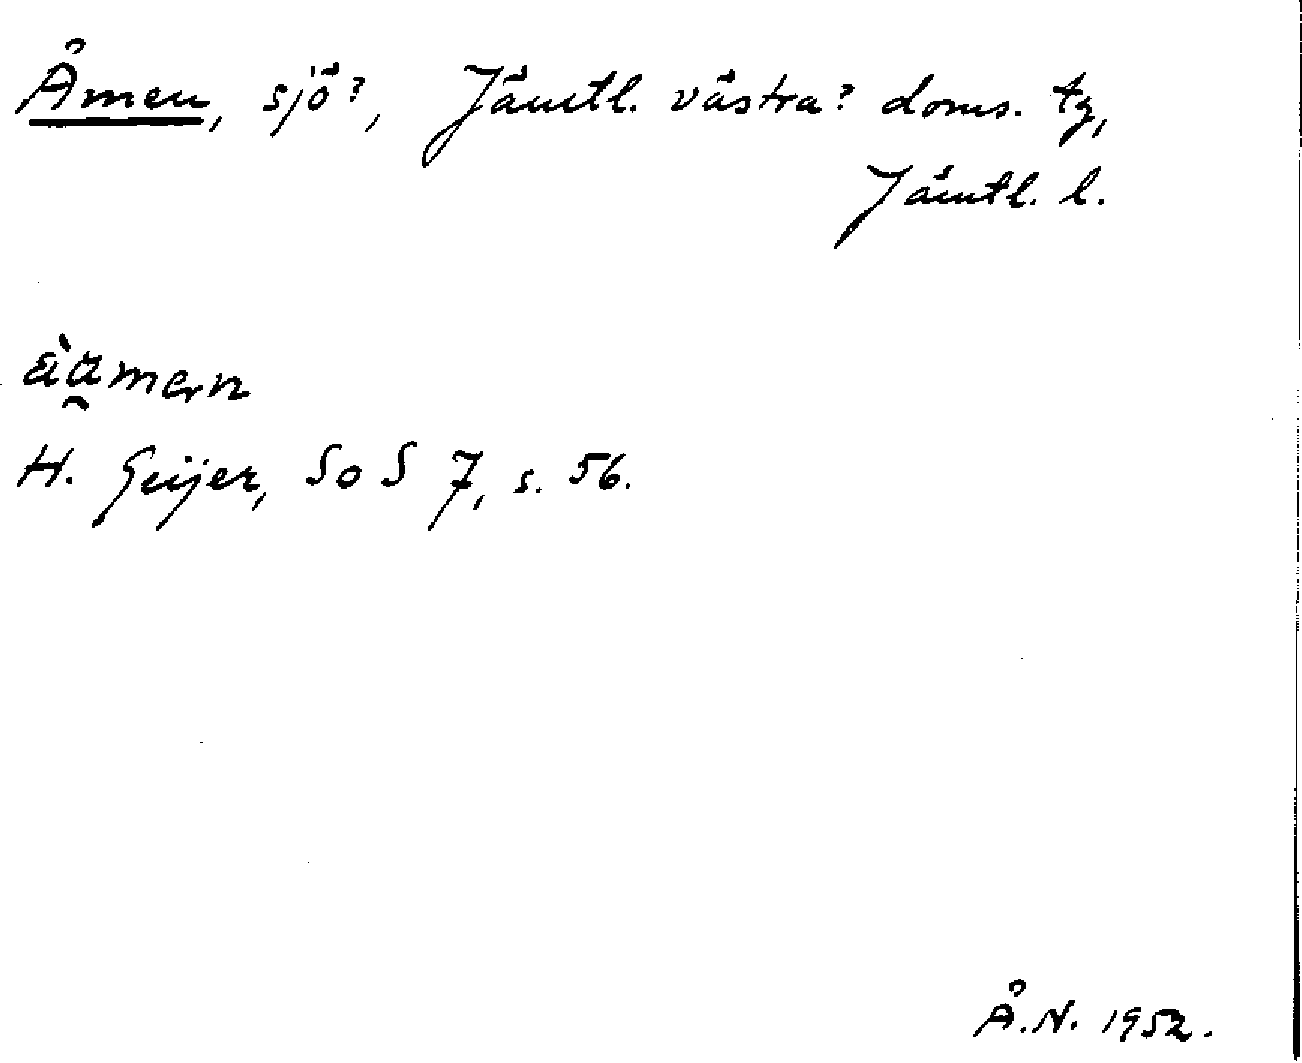 Åmen, sjö?, Jämtl. västra? doms. tg,
Jämtl. l.
H. Geijer, SoS 7, s. 56.
Å.N. 1952.